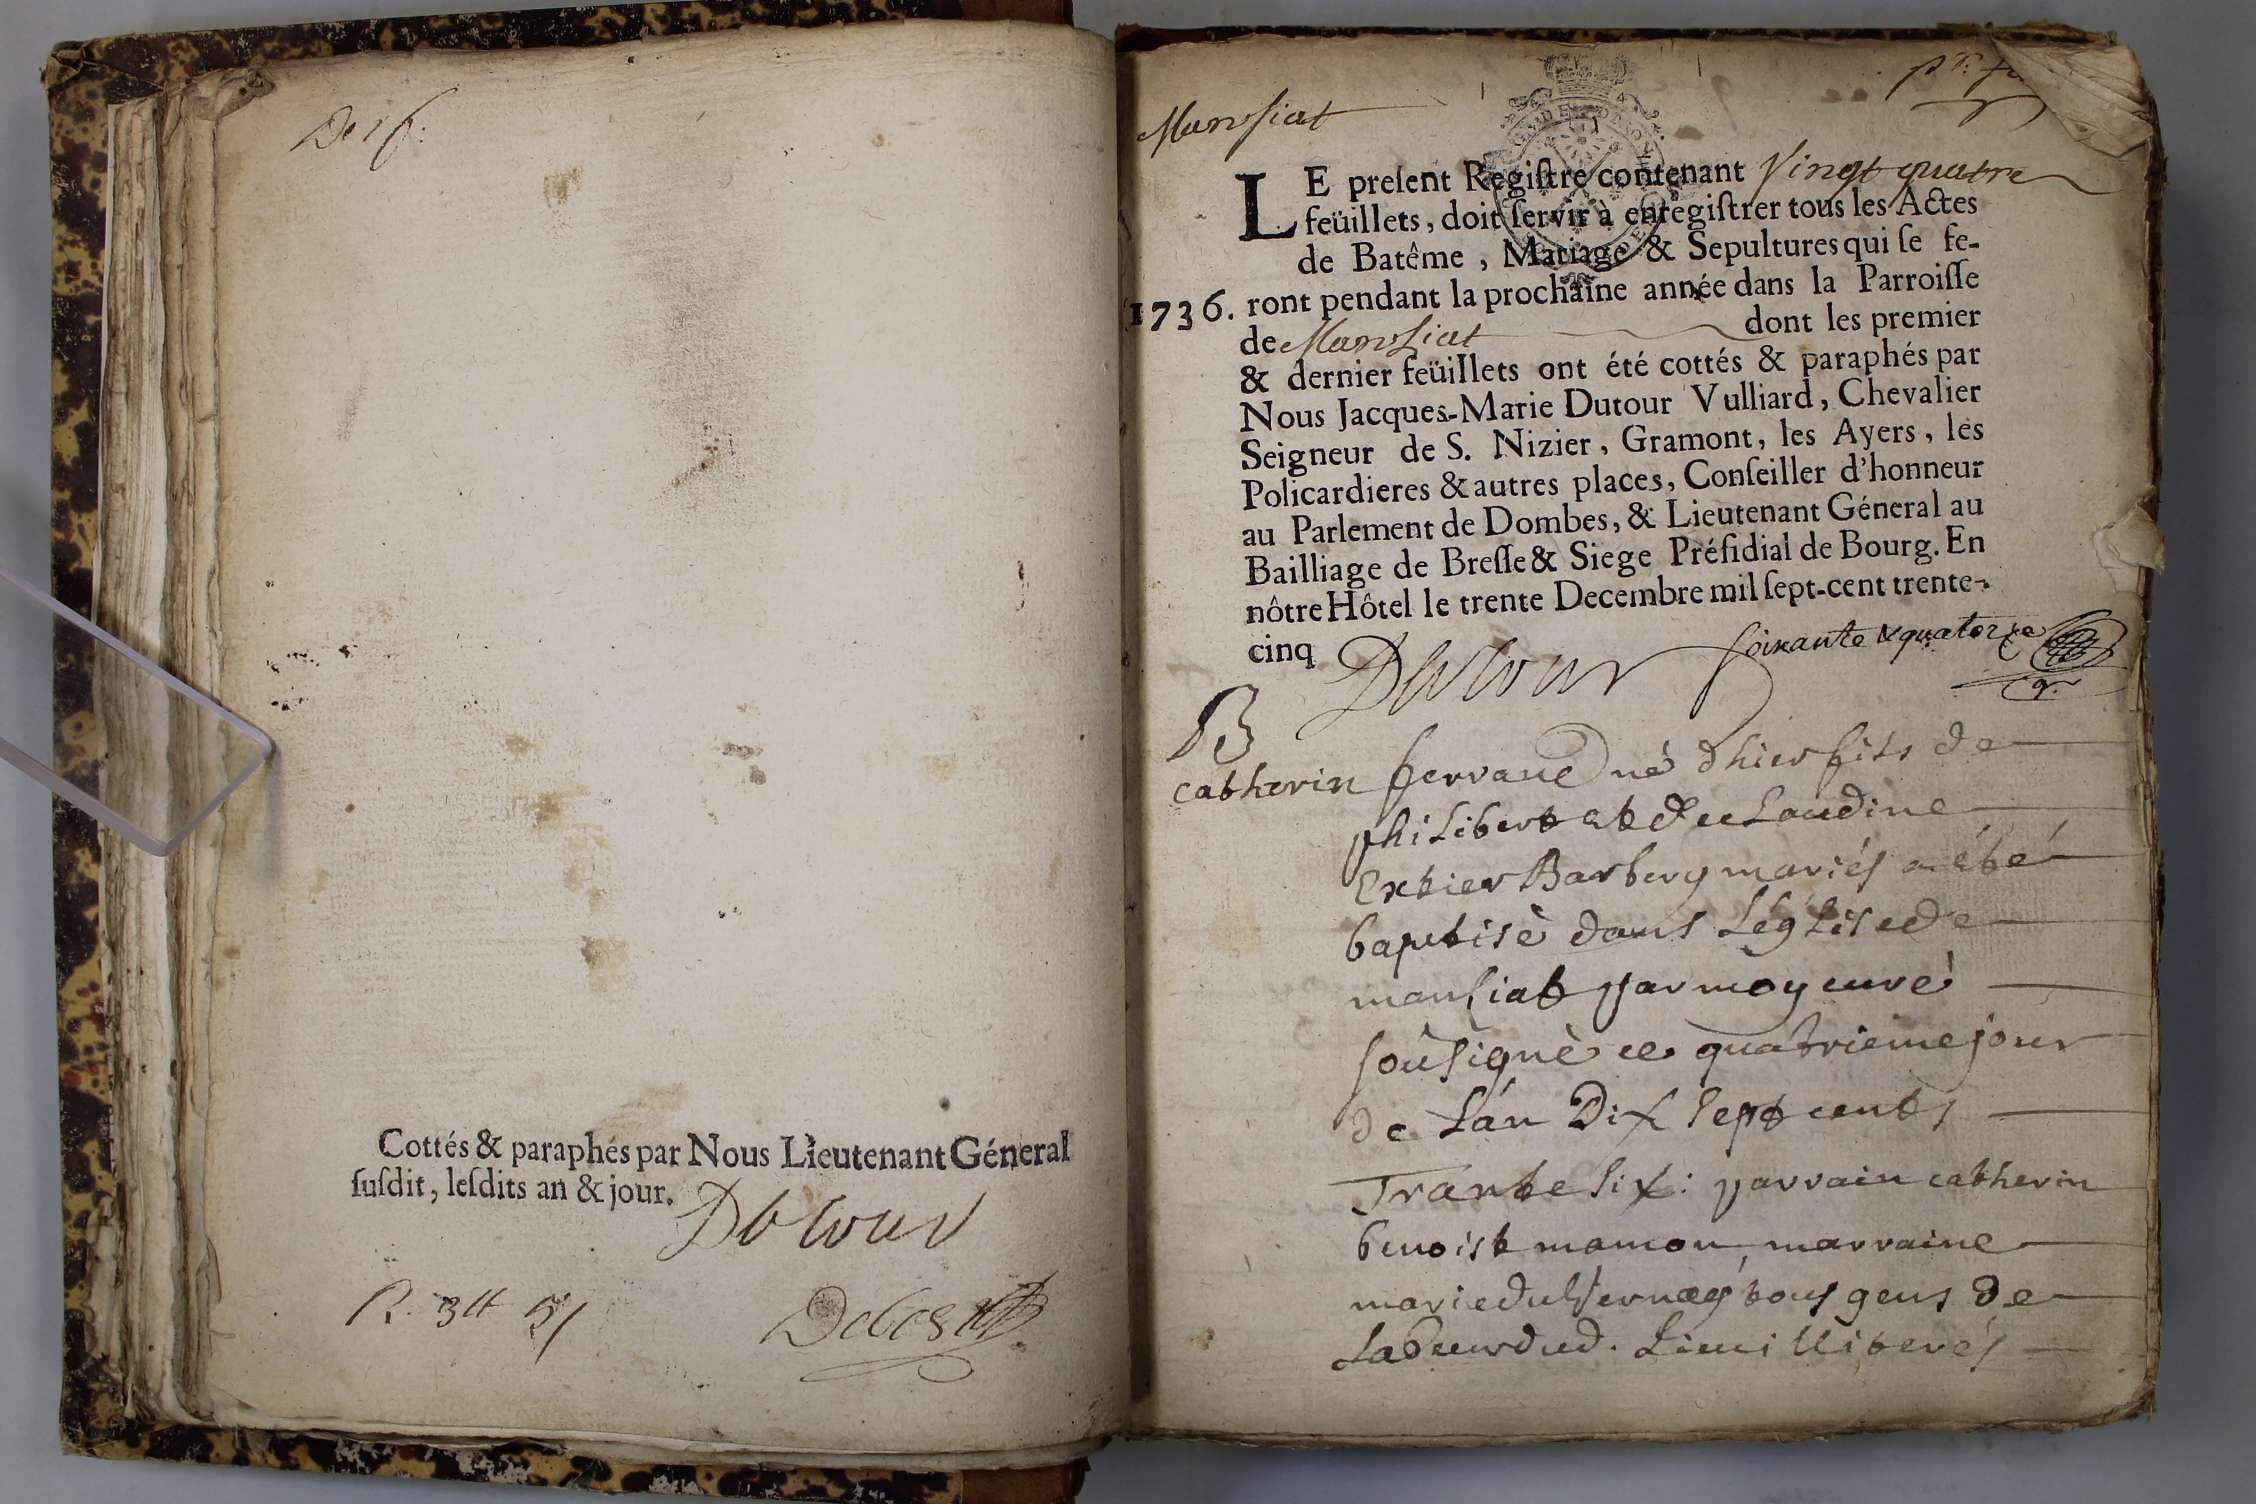 Cottés & paraphés par Nous Lieutenant Géneral
ſuſdit, leſdits an & jour.
Dutour
R. 3tt
Manſiat
LE preſent Regiſtre contenant Vingt quatre
feüillets, doit ſervir à enregiſtrer tous les Actes
de Batême, Mariage & Sepultures qui ſe fe-
1736. ront pendant la prochaine année dans la Parroiſſe
de Manſiat dont les premier
& dernier feüillets ont été cottés & paraphés par
Nous Jacques-Marie Dutour Vulliard, Chevalier
Seigneur de S. Nizier, Gramont, les Ayers, les
Policardieres & autres places, Conſeiller d'honneur
au Parlement de Dombes, & Lieutenant Géneral au
Bailliage de Breſſe & Siege Préſidial de Bourg. En
nôtre Hôtel le trente Decembre mil ſept-cent trente-
cinq Dutour
ſoixante & quatorze
B
catherin ferrand né dhier fils de
philibert et de claudine
mariés a été
baptisé dans Léglise de
manſiat par moy curé
ſouſigné ce quatrieme jour
de Lán Dix ſept cents
Trante ſix: parrain catherin
benoist mamon marraine
marie tous gens de
Labeur dud. Lieu illiterés